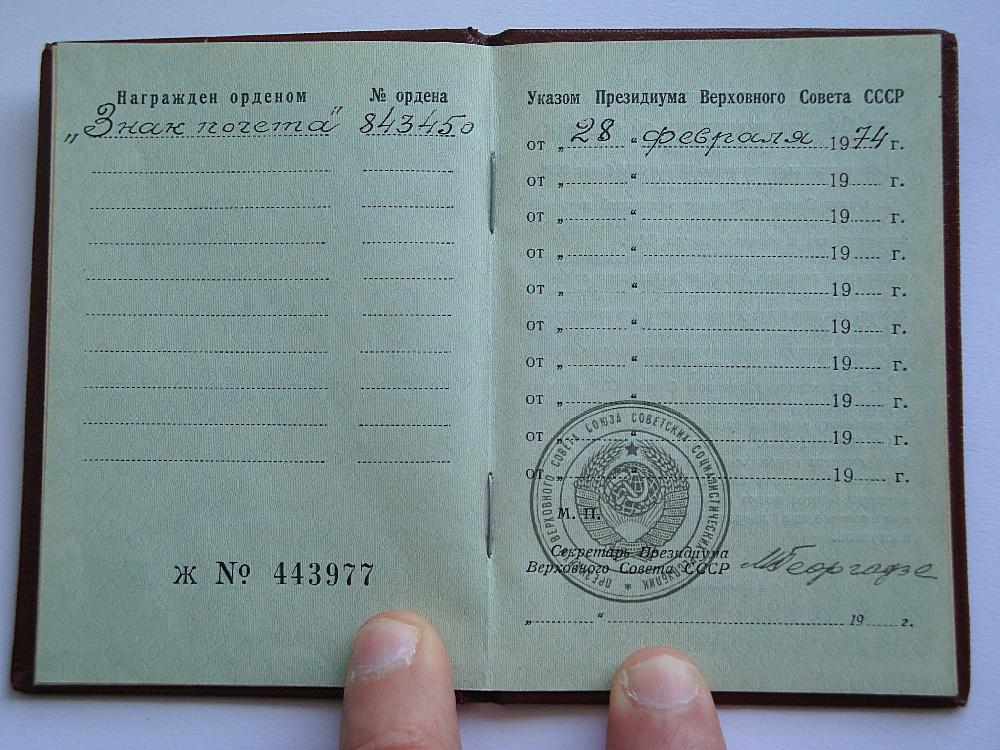 Награжден орденом № ордена
„Знак почета“ 843450
Ж № 443977
Указом Президиума Верховного Совета СССР
от „ 28 “ февраля 1974 г.
от „ “ 19 г.
от „ “ 19 г.
от „ “ 19 г.
от „ “ 19 г.
от „ “ 19 г.
от „ “ 19 г.
от „ “ 19 г.
от „ “ 19 г.
от „ “ 19 г.
ПРЕЗИДИУМ ВЕРХОВНОГО СОВЕТА СОЮЗА СОВЕТСКИХ СОЦИАЛИСТИЧЕСКИХ РЕСПУБЛИК
М. П.
Секретарь Президиума
Верховного Совета СССР МГеоргадзе
„ “ 19 г.